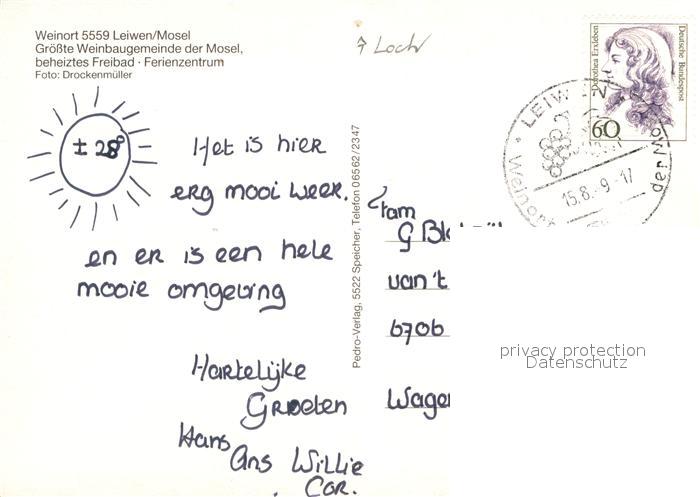 Weinort 5559 Leiwen/Mosel
Größte Weinbaugemeinde der Mosel,
beheiztes Freibad · Ferienzentrum
Foto: Drockenmüller
± 28°
Het is hier
erg mooi weer.
en er is een hele
mooie omgeving
Hartelijke
Groeten
Hans
Ans Willie
Cor.
Pedro-Verlag, 5522 Speicher, Telefon 06562/2347
7 Loch
Dorothea Erxleben
Deutsche Bundespost
60
Weinort · LEIW
der Mo
15.8.-9.-17
fam
G Bl
van 't
6706
Wagen
privacy protection
Datenschutz